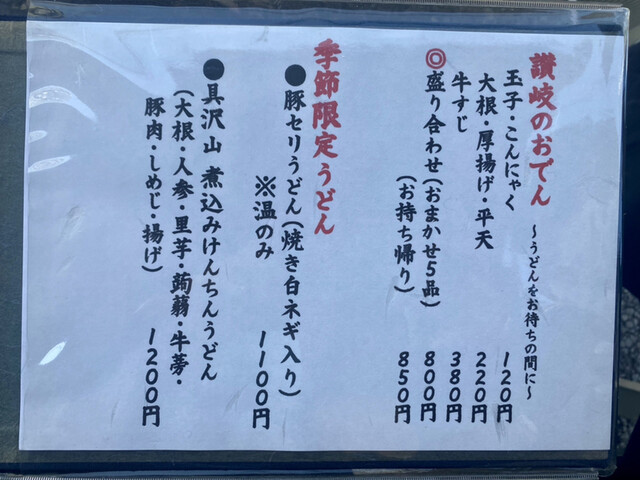 讃岐のおでん ～うどんをお待ちの間に～
玉子・こんにゃく 120円
大根・厚揚げ・平天 220円
牛すじ 380円
◎盛り合わせ(おまかせ5品) 800円
(お持ち帰り) 850円
季節限定うどん
●豚セリうどん(焼き白ネギ入り)
※温のみ 1100円
●具沢山 煮込みけんちんうどん
(大根・人参・里芋・蒟蒻・牛蒡・
豚肉・しめじ・揚げ) 1200円